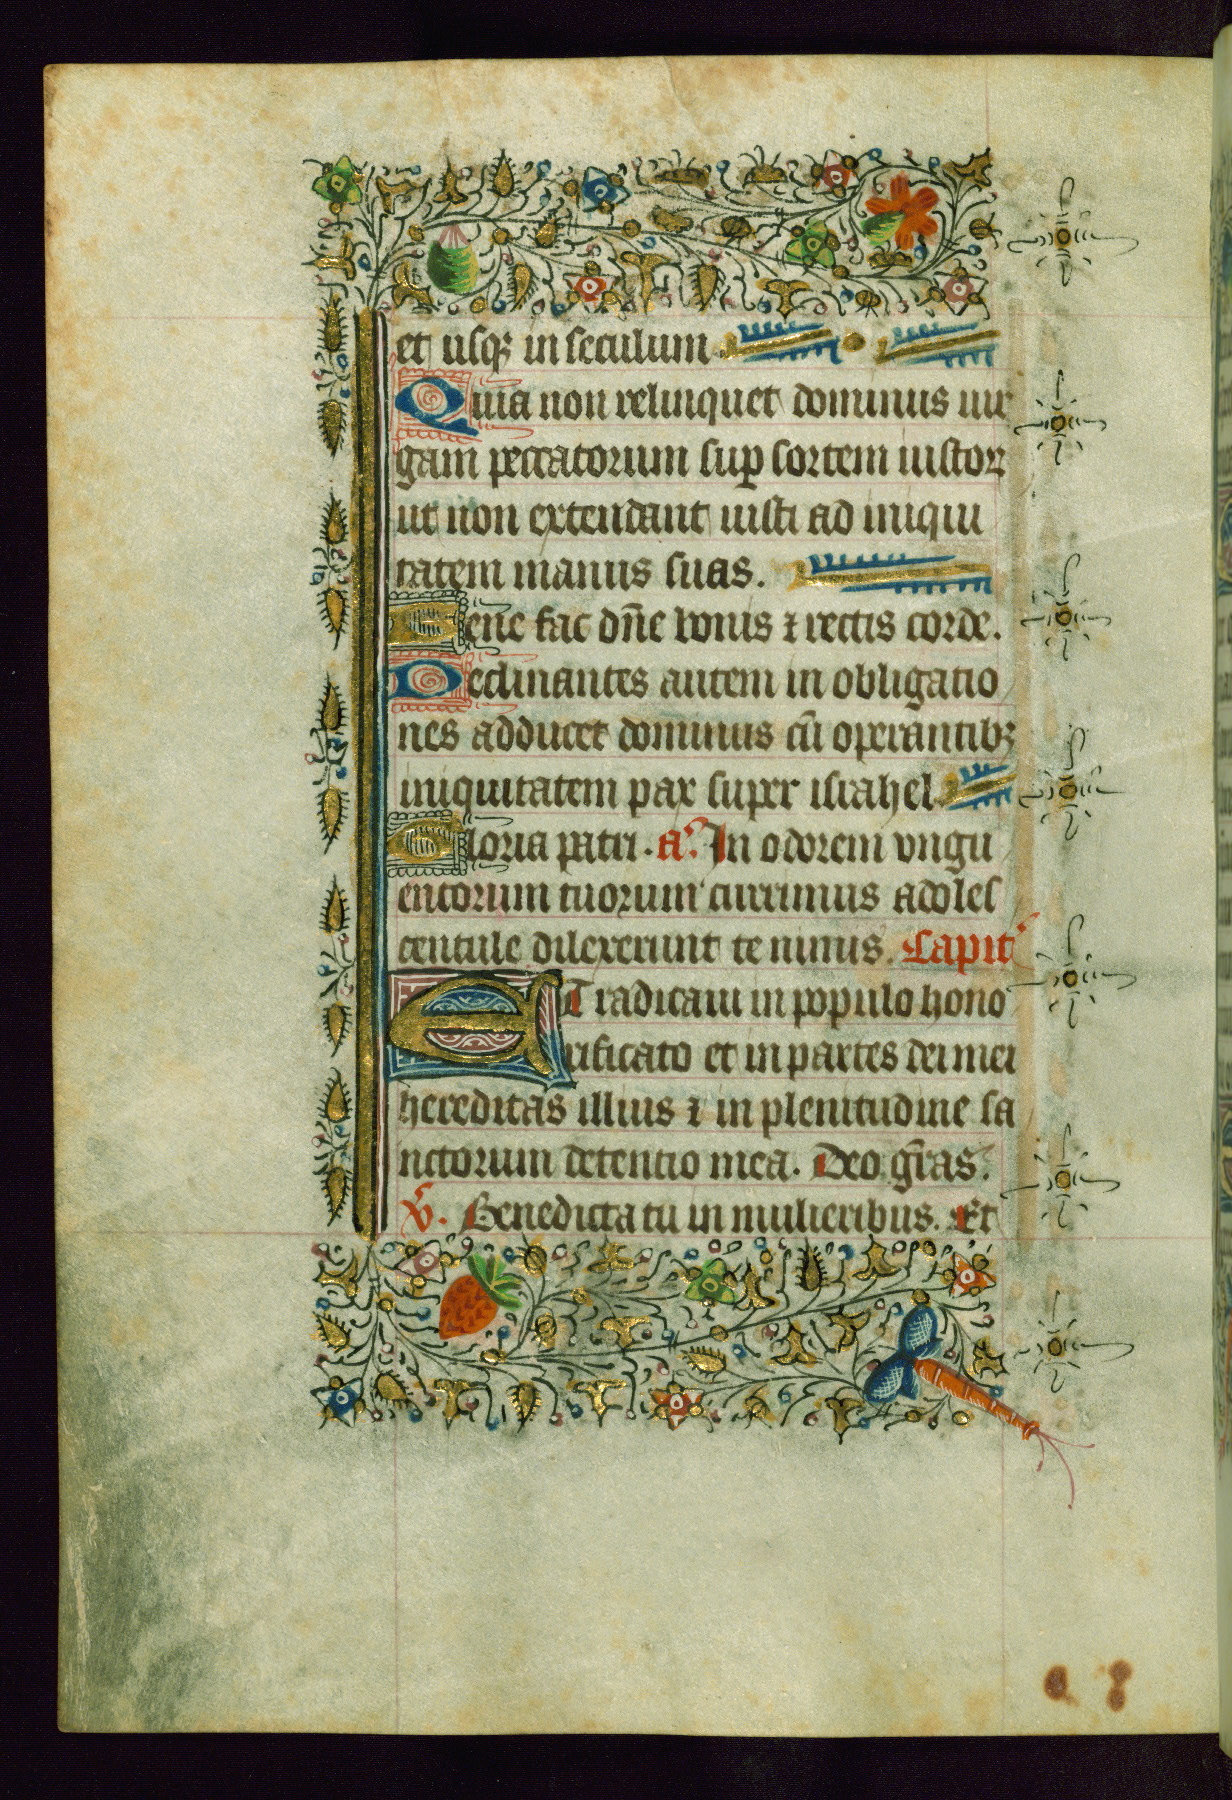 et usqꝫ in seculum
Quia non relinquet dominus uir
gam peccatorum suꝑ sortem iustoꝝ
ut non extendant iusti ad iniqui
tatem manus suas.
Bene fac dn̄e bonis ⁊ rectis corde.
Declinantes autem in obligatio
nes adducet dominus cū operantibꝫ
iniquitatem pax super israhel.
Gloria patri. a᷎. In odorem vngu
entorum tuorum currimus adoles
centule dilexerunt te nimis. Capit᷎
ET radicaui in populo hono
rificato et in partes dei mei
hereditas illius ⁊ in plenitudine sa
nctorum detentio mea. Deo gr̄as.
v̾. Benedicta tu in mulieribus. Et